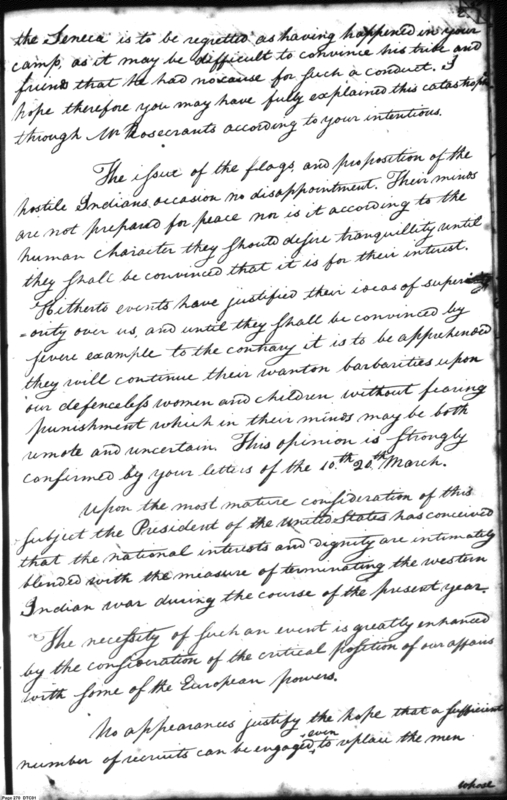 the Seneca is to be regretted as having happened in your
camp, as it may be difficult to convince his tribe and
friends that he had no cause for such a conduct. I
hope therefore you may have fully explained this catastrophe
through Mr Rosecrants according to your intentions.
The issue of the flags, and proposition of the
hostile Indians, occasion no disappointment. Their minds
are not prepared for peace nor is it according to the
human character they should desire tranquillity until
they shall be convinced that it is for their interest.
Hitherto events have justified their ideas of superi
-ority over us, and until they shall be convinced by
severe example to the contrary it is to be apprehended
they will continue their wanton barbarities upon
our defenceless women and children, without fearing
punishment which in their minds may be both
remote and uncertain. This opinion is strongly
confirmed by your letters of the 10th 20th March.
Upon the most mature consideration of this
subject the President of the United States has conceived
that the national interests and dignity are intimately
blended with the measure of terminating the western
Indian war during the course of the present year.
The necessity of such an event is greatly enhanced
by the consideration of the critical position of our affairs
with some of the European powers.
No appearances justify the hope that a sufficient
number of recruits can be engaged, even to replace the men
whose
Page 276 DTC01